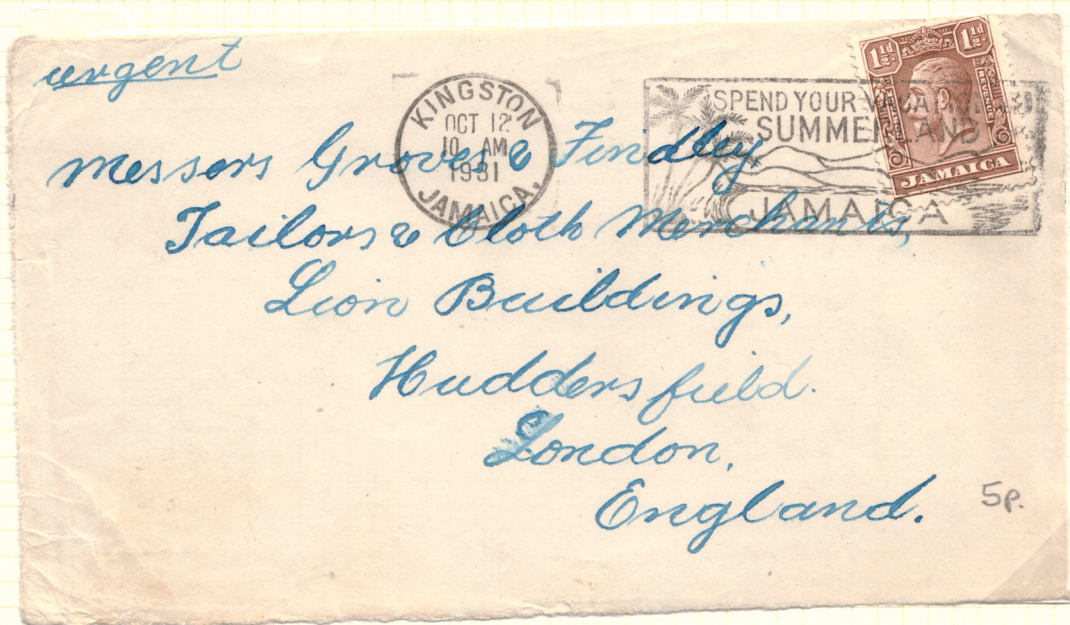 urgent
KINGSTON
OCT 12
10 AM
1931
JAMAICA.
SPEND YOUR VACATION
SUMMERLAND
JAMAICA
1½d. 1½d.
REVENUE
JAMAICA
Messers Groves & Findley
Tailors & Cloth Merchants,
Lion Buildings,
Huddersfield.
London,
England.
5p.